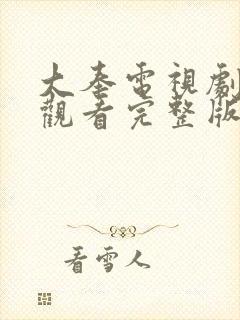 大秦電視劇
觀看完整版
看雪人